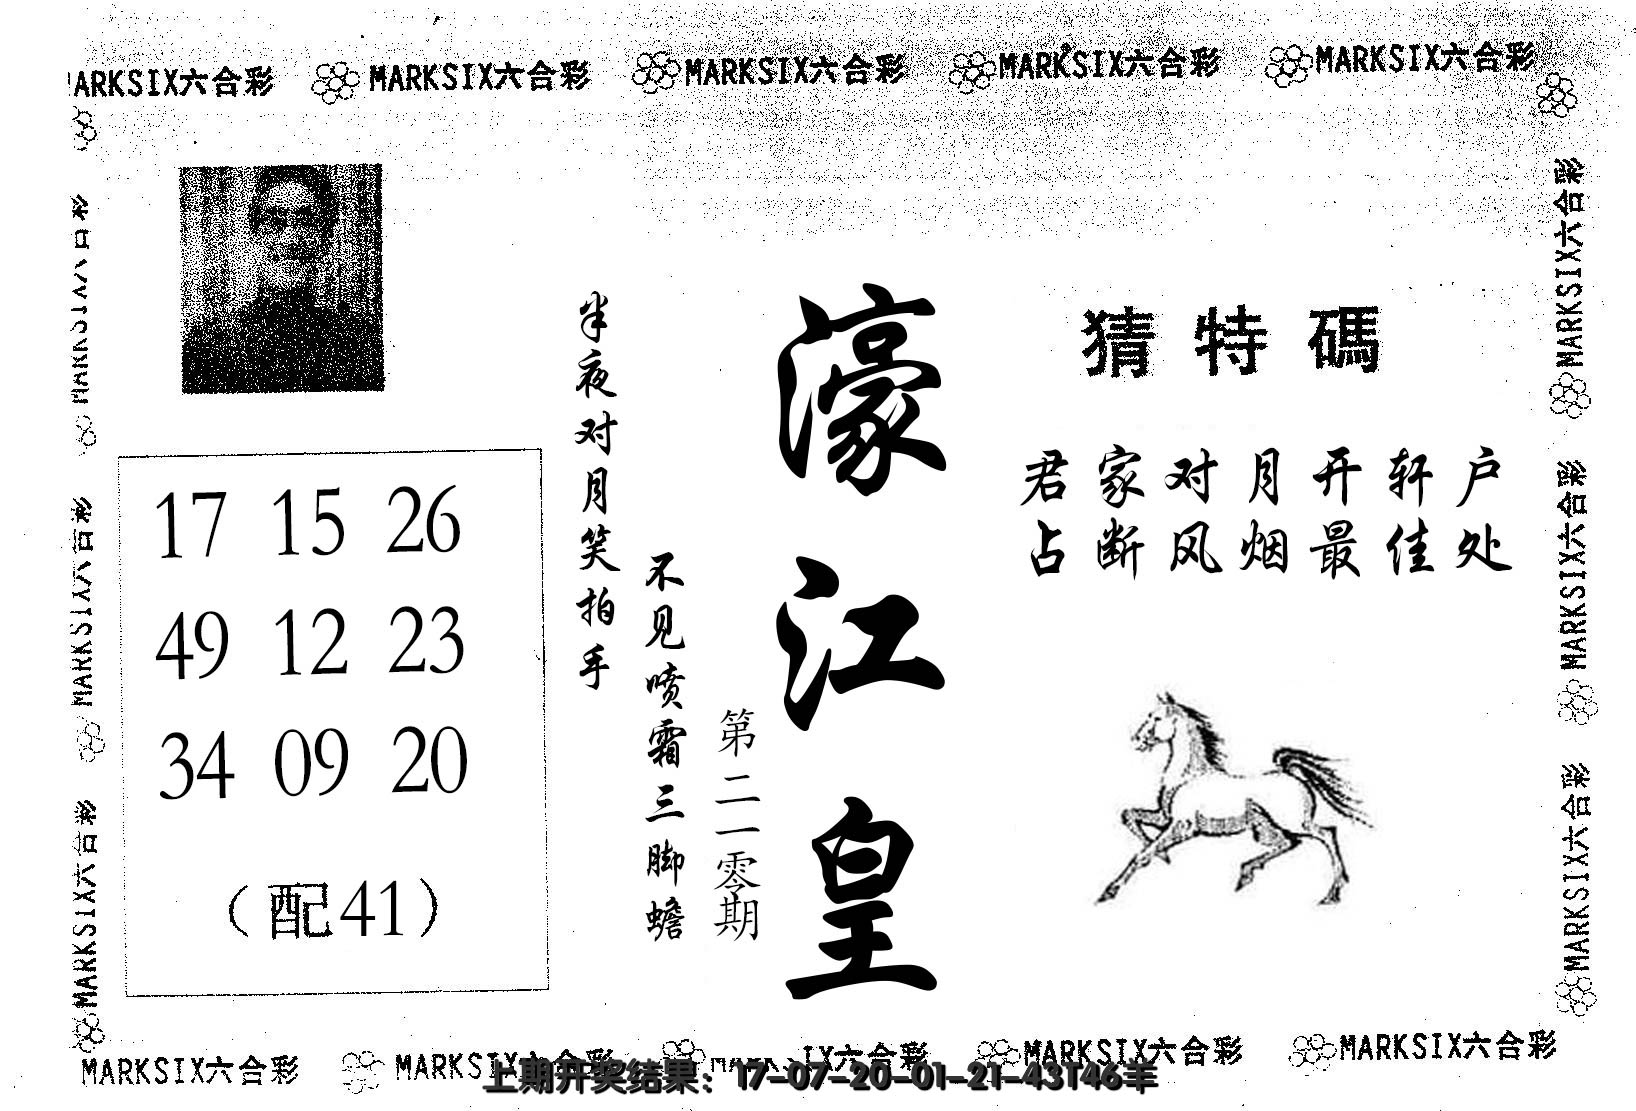 MARKSIX六合彩 MARKSIX六合彩 MARKSIX六合彩 MARKSIX六合彩 MARKSIX六合彩
猜特碼
君家对月开轩户
占断风烟最佳处
濠江皇
第二一零期
半夜对月笑拍手
不见喷霜三脚蟾
17 15 26
49 12 23
34 09 20
（配41）
MARKSIX六合彩
MARKSIX六合彩
MARKSIX六合彩
MARKSIX六合彩
MARKSIX六合彩
MARKSIX六合彩
MARKSIX六合彩 MARKSIX六合彩 MARKSIX六合彩 MARKSIX六合彩
上期开奖结果：17-07-20-01-21-43T46羊